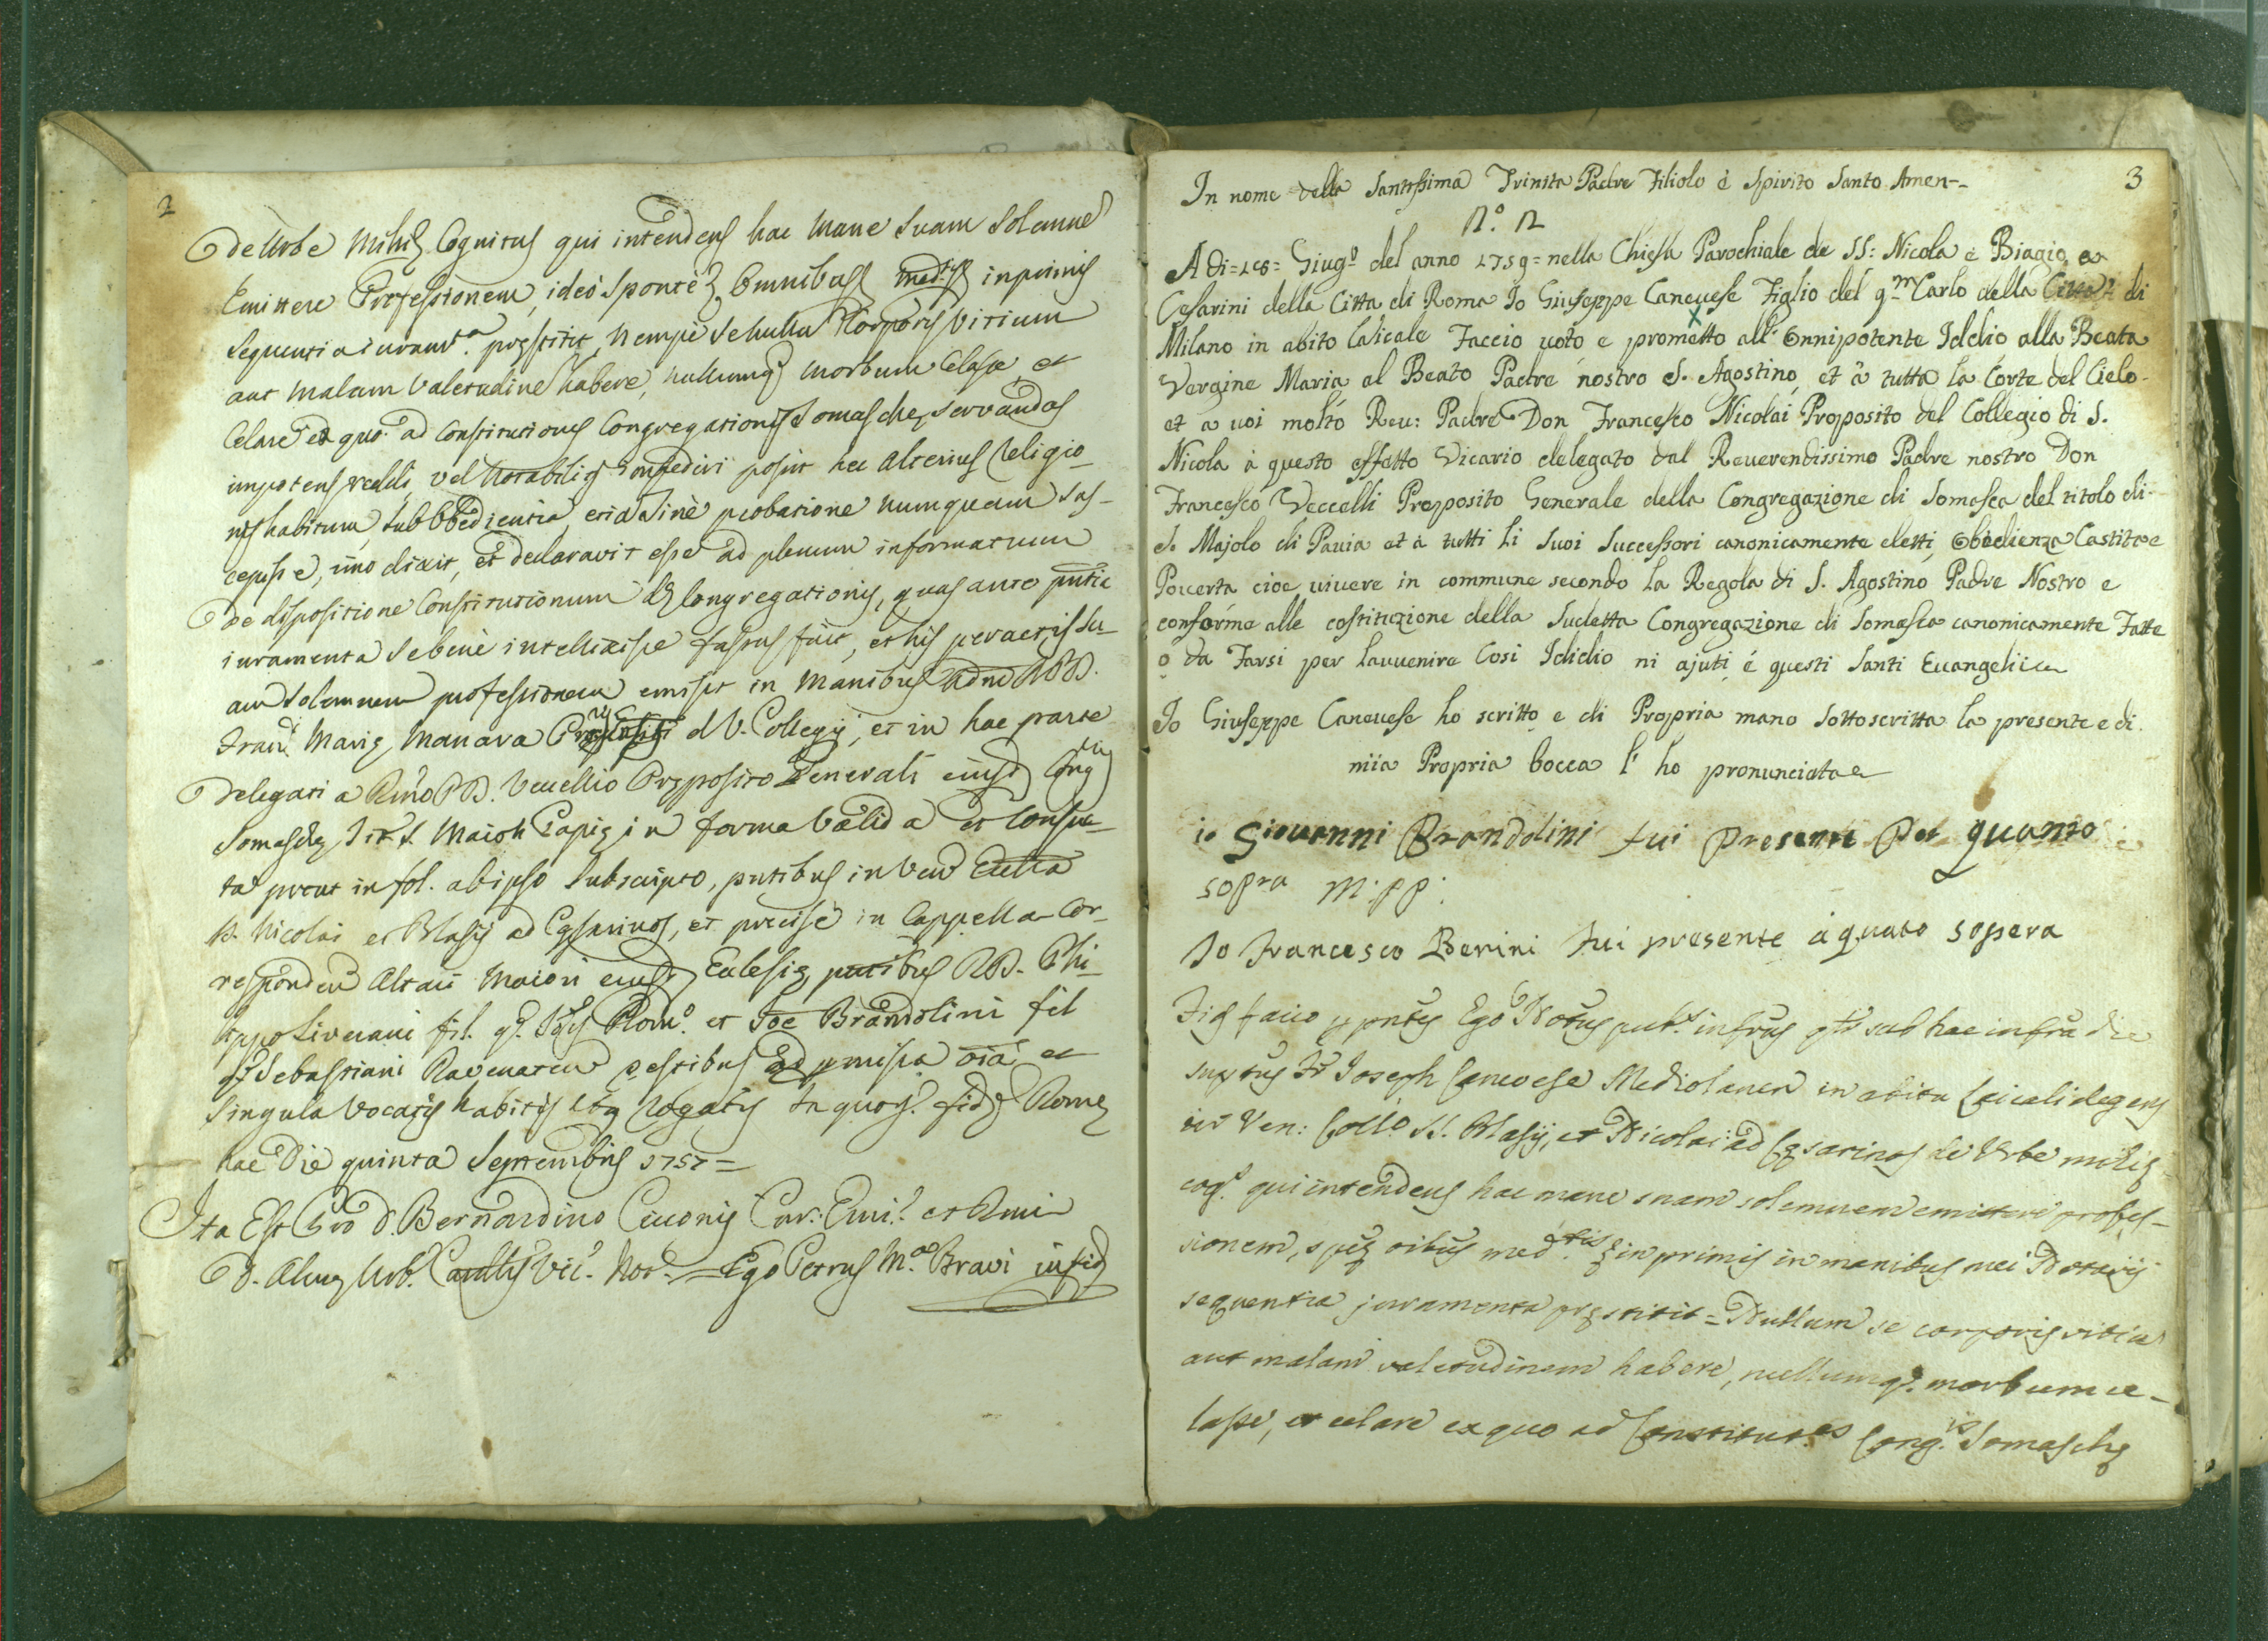 2
de Urbe Mihi Cognitus qui intendens hac Mane Suam Solemne
Emittere Professionem, ideò Spontè, Omnibus medijs inprimis
Sequentia iuram.ta prestitit, Nempè Se nullu Corporis Vitium
aut Malam Valetudine habere, nullumq morbum Celasse, et
Celare ex quo ad Constitutiones Congregationis Somasche servandas
impotens reddi, vel Notabiliter impediri possit nec alterius Religio-
nis habitum, sub Obbedientia, etia Sinè probatione numquam sus-
cepisse, imo dixit, et declaravit esse ad plenum informatum
De dispositione Constitutionum d. Congregationis, quas ante pntia
iuramenta se benè intellexisse fassus fuit, et his peractis Su-
am Solemnem professionem emisit in Manibus Adm RPD.
Franc. Marie Manara d. V. Collegij, et in hac parte
Delegati a Rmo PD. Vecellio Preposito Generali eiusd Cong
Somasche, Tit. S. Maioli Papie in forma Valida et Consue-
ta prout in fol. ab ipso Subscripto, pntibus in Ven Ecclia
SS. Nicolai et Blasij ad Cesarinos, et precisè in Cappella Cor-
responden Altari Maiori eiusd Eclesie, pntibus RD. Phi-
lippo Liverani fil. q. Rom.o et Joe Brandolini fil
q. Sebastiani Ravenaten testibus ad premissa oia et
Singula Vocatis habitis atq Rogatis In quor. fidem Rome
hac Die quinta Septembris 1757 =
Ita Est Pro D. Bernardino Ciconij Cur. Emi. et Rmi
D. Alme Urb. Vic. Not. = Ego Petrus M.a Bravi in fidem
3
In nome della Santissima Trinita Padre Filiolo è Spirito Santo Amen--
N.o 2
A di = 18 = Giug.o del anno 1759 = nella Chiesa Parochiale de SS: Nicola è Biagio a
Cesarini della Citta di Roma Io Giuseppe Caneuese Figlio del q.m Carlo della Citta di
Milano in abito laicale Faccio uoto e prometto all' Onnipotente Iddio alla Beata
Vergine Maria al Beato Padre nostro S. Agostino et à tutta la Corte del Cielo
et a uoi molto Reu: Padre Don Francesco Nicolai Proposito del Collegio di S.
Nicola à questo effetto Vicario delegato dal Reuerendissimo Padre nostro Don
Francesco Veccelli Preposito Generale della Congregazione di Somasca del titolo di
S. Majolo di Pauia et à tutti li Suoi Successori canonicamente eletti, Obedienza Castita e
Pouerta cioe uiuere in commune secondo la Regola di S. Agostino Padre Nostro e
conforme alle costituzione della Sudetta Congregazione di Somasca canonicamente Fatte
o da Farsi per lauuenire Cosi Iddio ni ajuti é questi Santi Euangelii
Io Giuseppe Caneuese ho scritto e di Propria mano Sottoscritta la presente e di
mia Propria bocca l' ho pronunciata
io Giouanni Brandolini fui presente per quanto
sopra m:pp:
Io Francesco Berini fui presente a quato sopera
Fidem facio p pntes Ego Notus pub.s infrus qtr sub hac infra die
suptus Fr Joseph Canevese Mediolanen in abitu Laicali degens
in Ven: Coll.o SS. Blasij, et Nicolai ad Cesarinos de Urbe mihi
cog.s qui intendens hac mane suam solemnem emittere profes-
sionem, spte oibus med.tis inprimis in manibus mei Notarij
sequentia juramenta prestitit = Nullum se corporis vitiu
aut malam valetudinem habere, nullumq. morbum ce-
lasse, et celare ex quo ad Constitut.es Cong.is Somasche